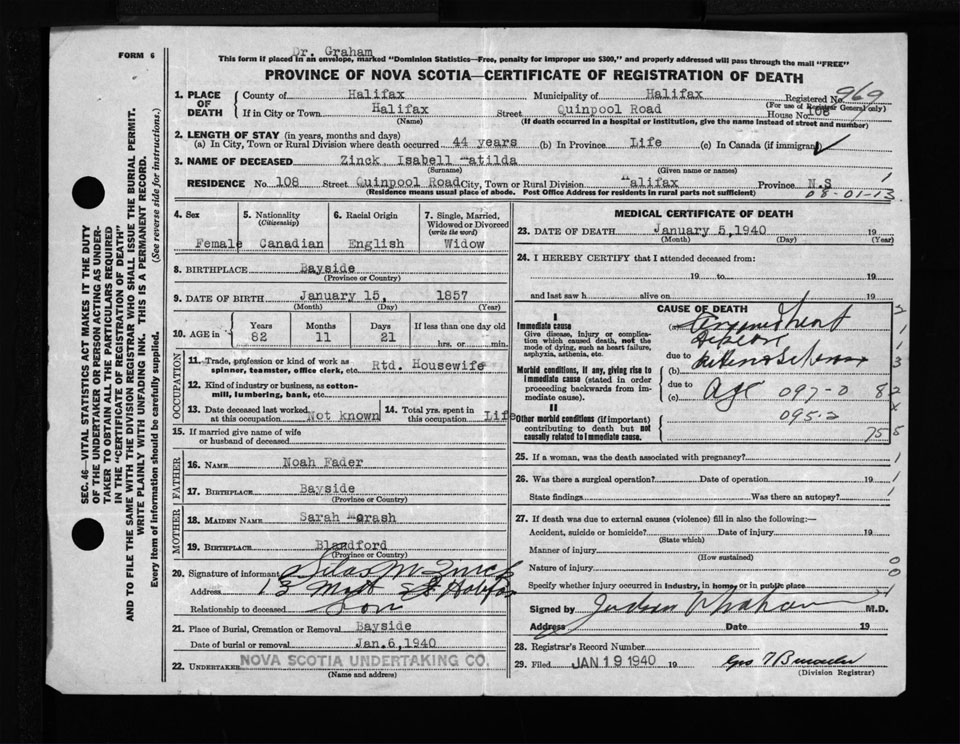 FORM 6
Dr. Graham
This form if placed in an envelope, marked "Dominion Statistics—Free, penalty for improper use $300," and properly addressed will pass through the mail "FREE"
PROVINCE OF NOVA SCOTIA—CERTIFICATE OF REGISTRATION OF DEATH
1. PLACE OF DEATH
County of Halifax Municipality of Halifax Registered No. 969
(For use of Registrar General only)
If in City or Town Halifax Street Quinpool Road House No. 108
(Name) (If death occurred in a hospital or institution, give the name instead of street and number)
2. LENGTH OF STAY (in years, months and days)
(a) In City, Town or Rural Division where death occurred 44 years (b) In Province Life (c) In Canada (if immigrant) ✓
3. NAME OF DECEASED Zinck, Isabell Matilda
(Surname) (Given name or names) 1
RESIDENCE No. 108 Street Quinpool Road City, Town or Rural Division Halifax Province N.S
(Residence means usual place of abode. Post Office Address for residents in rural parts not sufficient) 08-01-13
4. Sex Female
5. Nationality (Citizenship) Canadian
6. Racial Origin English
7. Single, Married, Widowed or Divorced (write the word) Widow
8. BIRTHPLACE Bayside
(Province or Country)
9. DATE OF BIRTH January 15, 1857
(Month) (Day) (Year)
10. AGE in Years 82 Months 11 Days 21 If less than one day old hrs. or min.
OCCUPATION
11. Trade, profession or kind of work as spinner, teamster, office clerk, etc. Rtd. Housewife
12. Kind of industry or business, as cotton-mill, lumbering, bank, etc.
13. Date deceased last worked at this occupation Not known
14. Total yrs. spent in this occupation Life
15. If married give name of wife or husband of deceased
FATHER
16. Name Noah Fader
17. Birthplace Bayside
(Province or Country)
MOTHER
18. Maiden Name Sarah Morash
19. Birthplace Blandford
(Province or Country)
20. Signature of informant Silas W Zinck
Address St Halifax
Relationship to deceased Son
21. Place of Burial, Cremation or Removal Bayside
Date of burial or removal Jan.6,1940
22. Undertaker NOVA SCOTIA UNDERTAKING CO.
(Name and address)
MEDICAL CERTIFICATE OF DEATH
23. DATE OF DEATH January 5,1940 19
(Month) (Day) (Year)
24. I HEREBY CERTIFY that I attended deceased from:
19 to 19
and last saw h alive on 19
CAUSE OF DEATH
I
Immediate cause
Give disease, injury or complication which caused death, not the mode of dying, such as heart failure, asphyxia, asthenia, etc.
(a)
due to
(b)
Morbid conditions, if any, giving rise to immediate cause (stated in order proceeding backwards from immediate cause).
due to
(c) Age 097-0 82
II
095-2
Other morbid conditions (if important) contributing to death but not causally related to Immediate cause.
75
25. If a woman, was the death associated with pregnancy?
26. Was there a surgical operation? Date of operation 19
State findings Was there an autopsy?
27. If death was due to external causes (violence) fill in also the following:—
Accident, suicide or homicide? Date of injury 19
(State which)
Manner of injury
(How sustained)
Nature of injury
Specify whether injury occurred in industry, in home, or in public place
Signed by Judson Graham M.D.
Address Date 19
28. Registrar's Record Number
29. Filed JAN 19 1940 19
(Division Registrar)
SEC. 46—VITAL STATISTICS ACT MAKES IT THE DUTY
OF THE UNDERTAKER OR PERSON ACTING AS UNDER-
TAKER TO OBTAIN ALL THE PARTICULARS REQUIRED
IN THE "CERTIFICATE OF REGISTRATION OF DEATH"
AND TO FILE THE SAME WITH THE DIVISION REGISTRAR WHO SHALL ISSUE THE BURIAL PERMIT.
WRITE PLAINLY WITH UNFADING INK. THIS IS A PERMANENT RECORD.
Every item of information should be carefully supplied. (See reverse side for instructions.)